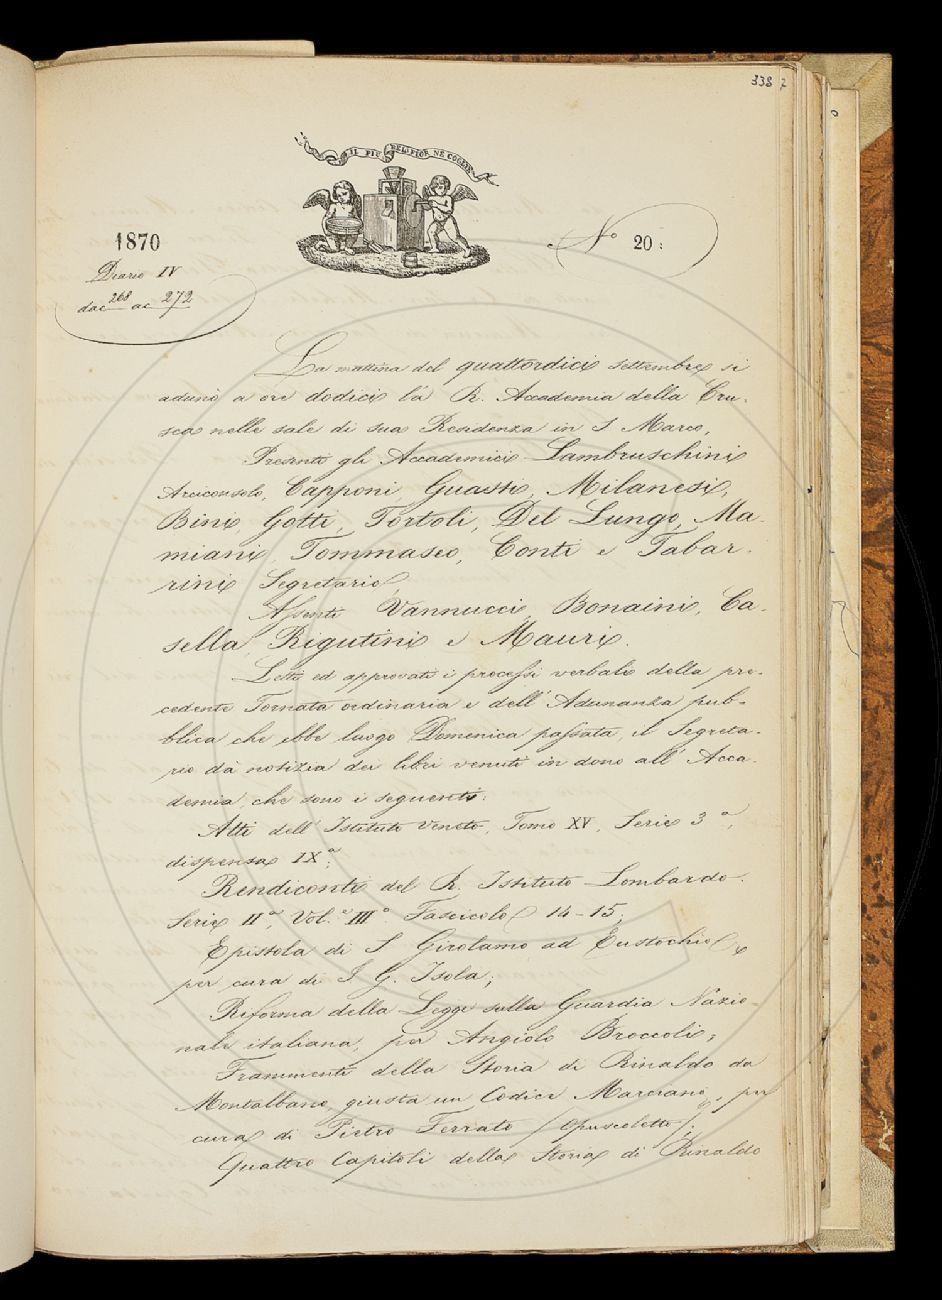 338 7
IL PIÙ BEL FIOR NE COGLIE
1870
Nº 20:
Diario IV
da c 268 a c 272
La mattina del quattordici settembre si
adunò a ore dodici la R. Accademia della Cru-
sca nelle sale di sua Residenza in S. Marco,
Presenti gli Accademici Lambruschini
Arciconsolo, Capponi, Guasti, Milanesi,
Bini, Gotti, Tortoli, Del Lungo, Ma-
miani, Tommaseo, Conti e Tabar-
rini Segretario,
Assenti Vannucci, Bonaini, Ca-
sella, Rigutini e Mauri.
Letti ed approvati i processi verbali della pre-
cedente Tornata ordinaria e dell' Adunanza pub-
blica che ebbe luogo Domenica passata, il Segreta-
rio dà notizia dei libri venuti in dono all' Acca-
demia, che sono i seguenti:
Atti dell' Istituto Veneto, Tomo XV, Serie 3ª,
dispensa IXª;
Rendiconti del R. Istituto Lombardo.
Serie IIª, Vol.e IIIº Fascicolo 14-15;
Epistola di S. Girolamo ad Eustochio,
per cura di I. G. Isola;
Riforma della Legge sulla Guardia Nazio-
nale italiana, per Angiolo Broccoli;
Frammenti della Storia di Rinaldo da
Montalbano, giusta un Codice Marciano, per
cura di Pietro Ferrato (opuscoletto);
Quattro Capitoli della Storia di Rinaldo